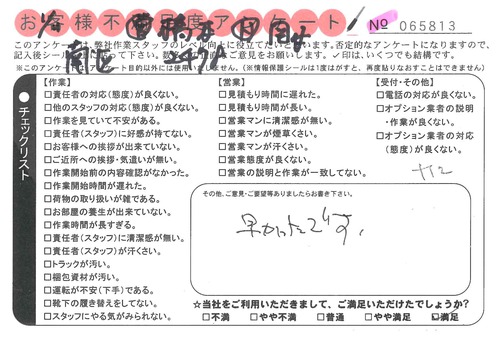 お客様不満足度アンケート № 065813
このアンケートは、弊社作業スタッフのレベル向上に役立てたいと思います。否定的なアンケートになりますので、
記入後シール
※このアンケートはアンケート目的以外には使用いたしません。(※情報保護シールは1度はがすと、再度貼りなおすことはできません)
チェックリスト
【作業】
□責任者の対応(態度)が良くない。
□他のスタッフの対応(態度)が良くない。
□作業を見ていて不安がある。
□責任者(スタッフ)に好感が持てない。
□お客様への挨拶が出来ていない。
□ご近所への挨拶・気遣いが無い。
□作業開始前の内容確認がなかった。
□作業開始時間が遅れた。
□荷物の取り扱いが雑である。
□お部屋の養生が出来ていない。
□作業時間が長すぎる。
□責任者(スタッフ)に清潔感が無い。
□責任者(スタッフ)が汗くさい。
□トラックが汚い。
□梱包資材が汚い。
□運転が不安(下手)である。
□靴下の履き替えをしてない。
□スタッフにやる気がみられない。
【営業】
□見積もり時間に遅れた。
□見積もり時間が長い。
□営業マンに清潔感が無い。
□営業マンが煙草くさい。
□営業マンが汗くさい。
□営業態度が良くない。
□営業の説明と作業が一致してない。
【受付・その他】
□電話の対応が良くない。
□オプション業者の説明
・作業が良くない。
□オプション業者の対応
(態度)が良くない。
その他、ご意見・ご要望等ありましたらお書き下さい。
早かったです。
☆当社をご利用いただきまして、ご満足いただけたでしょうか?
□不満 □やや不満 □普通 □やや満足 ☑満足